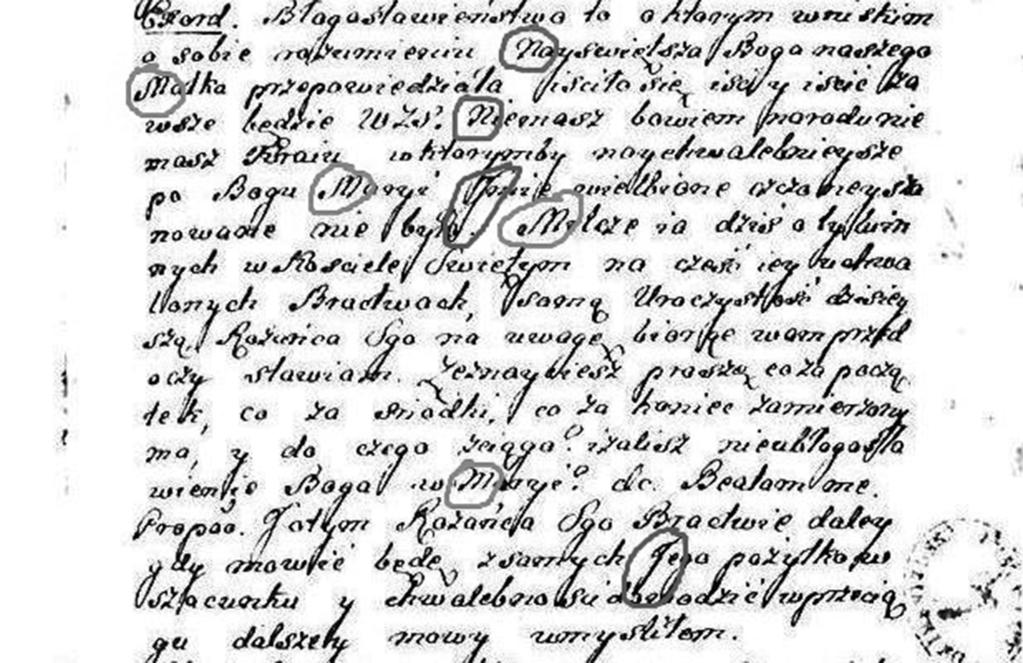 Exord. Błogosławieństwo to o ktorym w niskim
o sobie rozumieniu Nayswiętsza Boga naszego
Matka przepowiedziała iściło się, iści y iścić za
wsze będzie WZS? Niemasz bowiem narodu nie
masz Kraiu w ktorymby naychwalebnieysze
po Bogu Maryi Jmie wielbione czczo
nowane nie było. Milcze ia dziś o tylu in
nych w Kosciele Swiętym na cześć iey uchwa
lonych Bractwach, samą Uroczystość dzisiey
szą Rożańca Sgo na uwagę biorąc wam przed
oczy stawiam. proszę co za począ
tek, co za srzodki, co za koniec zamierzony
ma, y do czego ściąga? izalisz nie ubłogosła
wienie Boga w Maryi? dc. Beatam me.
Propoo. Jotym Rożańca Sgo Bractwie daley
gdy mowić będę z samych Jego pożytkow
szacunku y chwalebności dochodzić w przecią
gu dalszey mowy umysliłem.